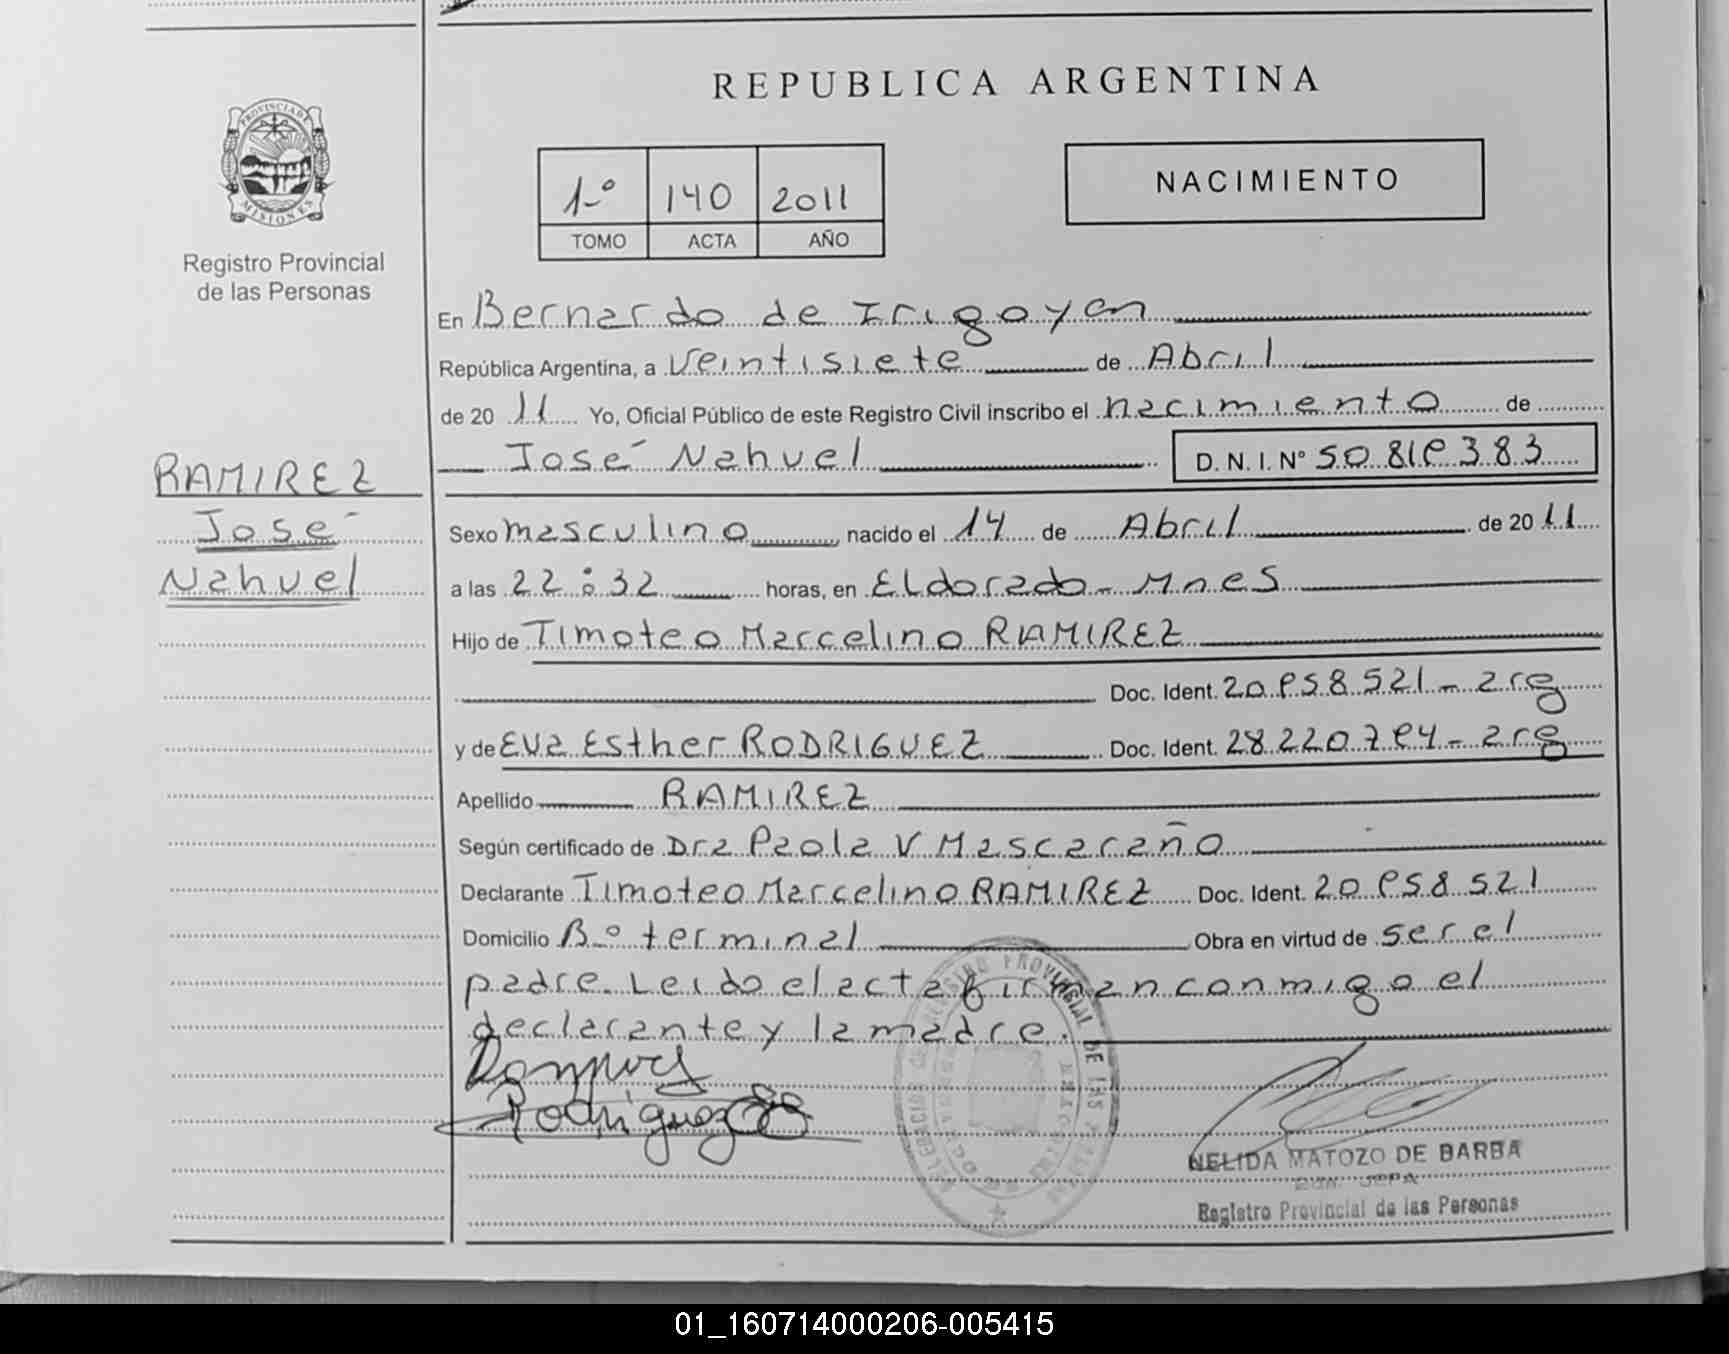 REPUBLICA ARGENTINA
PROVINCIA DE MISIONES
Registro Provincial
de las Personas
1º 140 2011
TOMO ACTA AÑO
NACIMIENTO
En Bernardo de Irigoyen
República Argentina, a veintisiete de Abril
de 2011 Yo, Oficial Público de este Registro Civil inscribo el nacimiento de
José Nahuel D.N.I.Nº 50 819 383
RAMIREZ
José
Nahuel
Sexo masculino nacido el 14 de Abril de 2011
a las 22:32 horas, en Eldorado - Mnes
Hijo de Timoteo Marcelino RAMIREZ
Doc. Ident. 20.958.521 - arg
y de Eva Esther RODRIGUEZ Doc. Ident. 28.220.794 - arg
Apellido RAMIREZ
Según certificado de Dra Paola V Mascaraño
Declarante Timoteo Marcelino RAMIREZ Doc. Ident. 20 958 521
Domicilio Bº terminal Obra en virtud de ser el
padre. Leido el acta firman conmigo el
declarante y la madre.
Rodriguez
REGISTRO PROVINCIAL DE LAS PERSONAS
NELIDA MATOZO DE BARBA
JEFA
Registro Provincial de las Personas
01_160714000206-005415